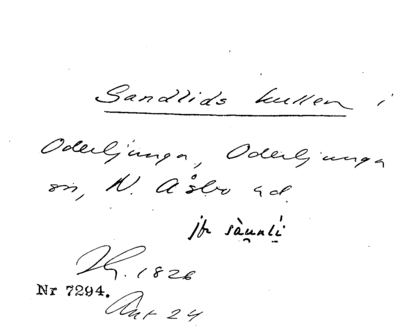 Sandlids kullen i
Oderljunga, Oderljunga
sn, N. Åsbo hd.
jfr
1826
Nr 7294.
Ant 24